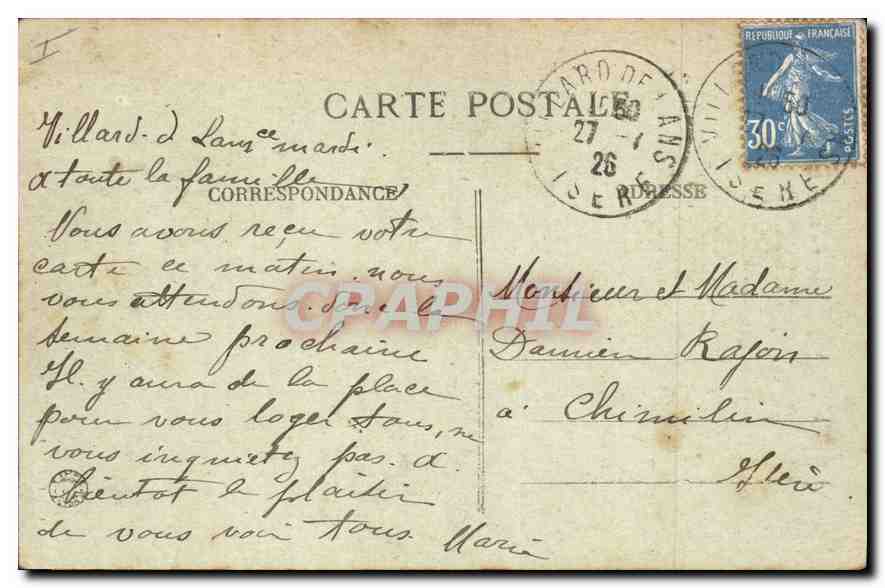 I
CARTE POSTALE
REPUBLIQUE FRANÇAISE
30c
POSTES
VILLARD DE LANS
1 50
27 -1
26
ISERE
Villard-d Lans ce mardi
a toute la famille,
CORRESPONDANCE
ADRESSE
Vous avons reçu votre
carte ce matin. nous
vous attendons donc la
semaine prochaine
Il y aura de la place
pour vous loger tous, ne
vous inquietez pas. a
bientot le plaisir
de vous voir tous Marie
Monsieur et Madame
Damien Rajon
à Chimilin
Isère
CPAPHIL